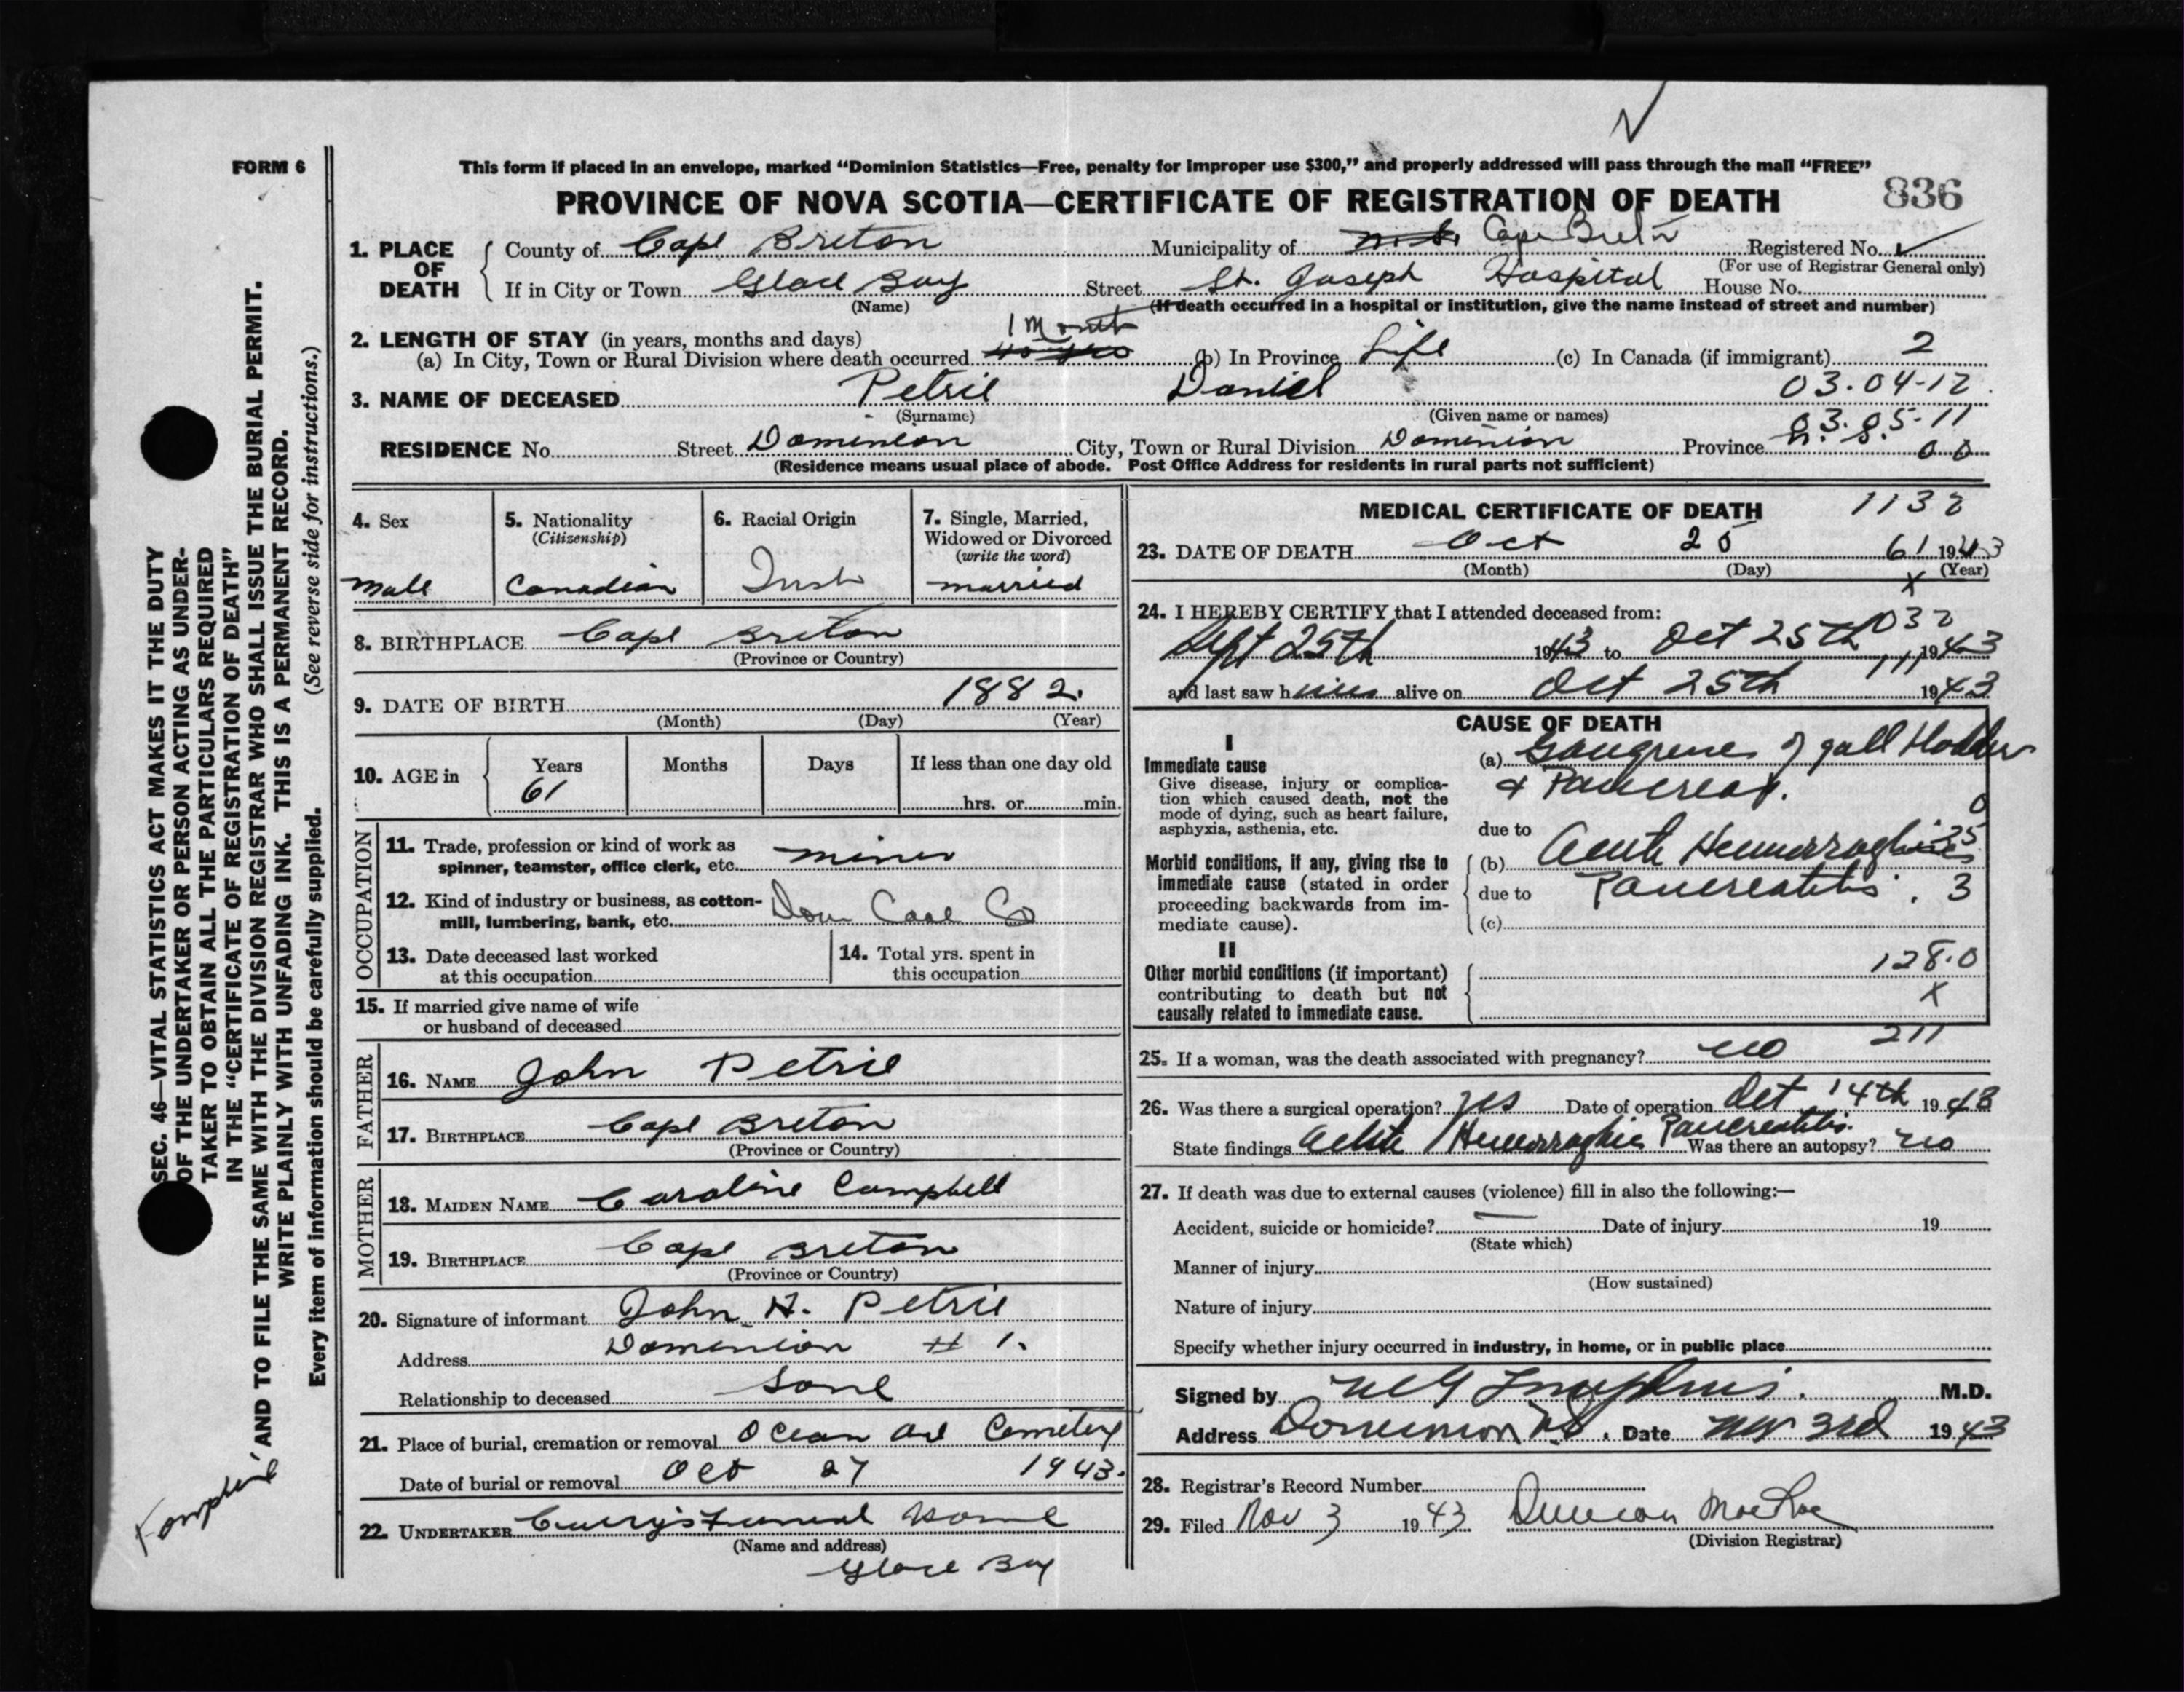 FORM 6
This form if placed in an envelope, marked “Dominion Statistics—Free, penalty for improper use $300,” and properly addressed will pass through the mail “FREE”
PROVINCE OF NOVA SCOTIA—CERTIFICATE OF REGISTRATION OF DEATH 836
1. PLACE OF DEATH
County of Cape Breton Municipality of Cape Breton Registered No.
(For use of Registrar General only)
If in City or Town Glace Bay Street St. Joseph Hospital House No.
(Name) (If death occurred in a hospital or institution, give the name instead of street and number)
2. LENGTH OF STAY (in years, months and days)
(a) In City, Town or Rural Division where death occurred 1 Month (b) In Province Life (c) In Canada (if immigrant) 2
3. NAME OF DECEASED Petrie Daniel 03.04-12
(Surname) (Given name or names) 03.05-11
RESIDENCE No. Street Dominion City, Town or Rural Division Dominion Province N. S. 00
(Residence means usual place of abode. Post Office Address for residents in rural parts not sufficient)
4. Sex
Male
5. Nationality
(Citizenship)
Canadian
6. Racial Origin
Irish
7. Single, Married, Widowed or Divorced
(write the word)
married
8. BIRTHPLACE Cape Breton
(Province or Country)
9. DATE OF BIRTH 1882.
(Month) (Day) (Year)
10. AGE in Years Months Days If less than one day old
61 hrs. or min.
OCCUPATION
11. Trade, profession or kind of work as
spinner, teamster, office clerk, etc. miner
12. Kind of industry or business, as cotton-
mill, lumbering, bank, etc. Dom Coal Co
13. Date deceased last worked
at this occupation
14. Total yrs. spent in
this occupation
15. If married give name of wife
or husband of deceased
FATHER
16. NAME John Petrie
17. BIRTHPLACE Cape Breton
(Province or Country)
MOTHER
18. MAIDEN NAME Caroline Campbell
19. BIRTHPLACE Cape Breton
(Province or Country)
20. Signature of informant John H. Petrie
Address Dominion # 1.
Relationship to deceased Sone
21. Place of burial, cremation or removal Ocean Cemetery
Date of burial or removal Oct 27 1943.
22. UNDERTAKER Curry's Funeral Home
(Name and address)
Glace Bay
MEDICAL CERTIFICATE OF DEATH 1132
23. DATE OF DEATH Oct 25 61 1943
(Month) (Day) (Year)
x
24. I HEREBY CERTIFY that I attended deceased from:
032
Sept 25th 1943 to Oct 25th 1943
111
and last saw him alive on Oct 25th 1943
CAUSE OF DEATH
I
Immediate cause
Give disease, injury or complica-
tion which caused death, not the
mode of dying, such as heart failure,
asphyxia, asthenia, etc.
(a) Gangrene of gall bladder
& Pancreas.
0
due to
Morbid conditions, if any, giving rise to
immediate cause (stated in order
proceeding backwards from im-
mediate cause).
(b) Acute Hemorraghic 25
due to Pancreatitis. 3
(c)
II
Other morbid conditions (if important)
contributing to death but not
causally related to immediate cause.
128.0
X
211
25. If a woman, was the death associated with pregnancy? no
26. Was there a surgical operation? yes Date of operation Oct 14th 1943
State findings Acute Hemorraghic Pancreatitis. Was there an autopsy? no
27. If death was due to external causes (violence) fill in also the following:—
Accident, suicide or homicide? — Date of injury 19
(State which)
Manner of injury
(How sustained)
Nature of injury
Specify whether injury occurred in industry, in home, or in public place
Signed by M G Tompkins. M.D.
Address Dominion NS. Date Nov 3rd 1943
28. Registrar's Record Number
29. Filed Nov 3 1943 Duncan MacRae
(Division Registrar)
SEC. 46—VITAL STATISTICS ACT MAKES IT THE DUTY
OF THE UNDERTAKER OR PERSON ACTING AS UNDER-
TAKER TO OBTAIN ALL THE PARTICULARS REQUIRED
IN THE “CERTIFICATE OF REGISTRATION OF DEATH”
AND TO FILE THE SAME WITH THE DIVISION REGISTRAR WHO SHALL ISSUE THE BURIAL PERMIT.
WRITE PLAINLY WITH UNFADING INK. THIS IS A PERMANENT RECORD.
Every item of information should be carefully supplied. (See reverse side for instructions.)
Tompkins